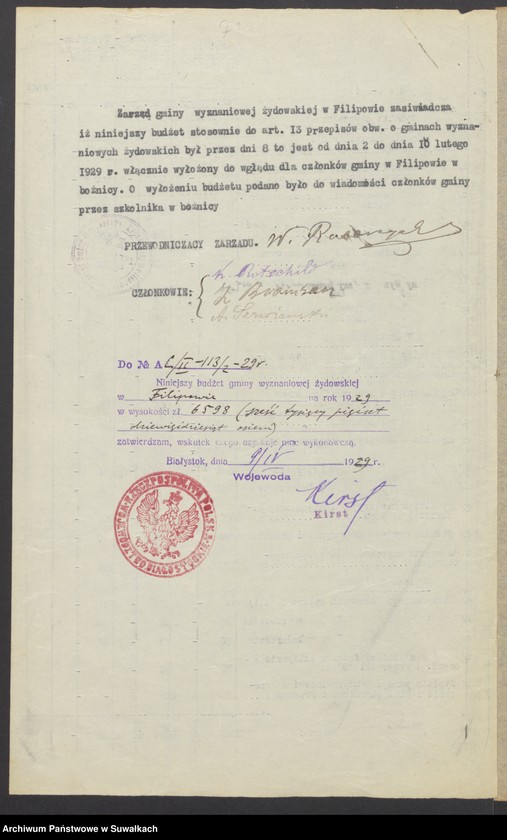 Zarząd gminy wyznaniowej żydowskiej w Filipowie zaświadcza
iż niniejszy budżet stosownie do art. 13 przepisów obw. o gminach wyzna-
niowych żydowskich był przez dni 8 to jest od dnia 2 do dnia 10 lutego
1929 r. włącznie wyłożony do wglądu dla członków gminy w Filipowie w
bożnicy. O wyłożeniu budżetu podano było do wiadomości członków gminy
przez szkolnika w bożnicy
PRZEWODNICZACY ZARZADU. W.
CZŁONKOWIE:
Do № A II-113/2-29r.
Niniejszy budżet gminy wyznaniowej żydowskiej
w Filipowie na rok 1929
w wysokości zł. 6598 (sześć tysięcy pięćset
dziewięćdziesiąt osiem)
zatwierdzam, wskutek czego uzyskuje moc wykonawczą.
Białystok, dnia 9/IV 1929 r.
Wojewoda
Kirst
Kirst
RZECZPOSPOLITA POLSKA
Archiwum Państwowe w Suwałkach